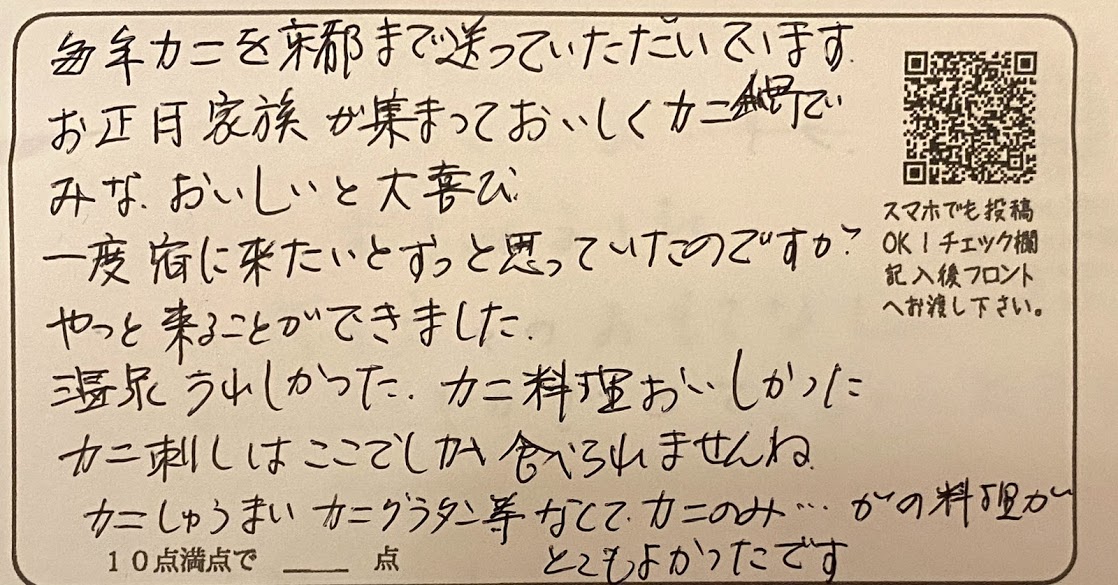 毎年カニを京都まで送っていただいています.
お正月家族が集まっておいしくカニ鍋で
みな.おいしいと大喜び.
一度宿に来たいとずっと思っていたのですが
やっと来ることができました.
温泉うれしかった.カニ料理おいしかった
カニ刺しはここでしか食べられませんね.
カニしゅうまいカニグラタン等なくて.カニのみ…がの料理が
とてもよかったです
10点満点で ___ 点
スマホでも投稿
OK!チェック欄
記入後フロント
へお渡し下さい。